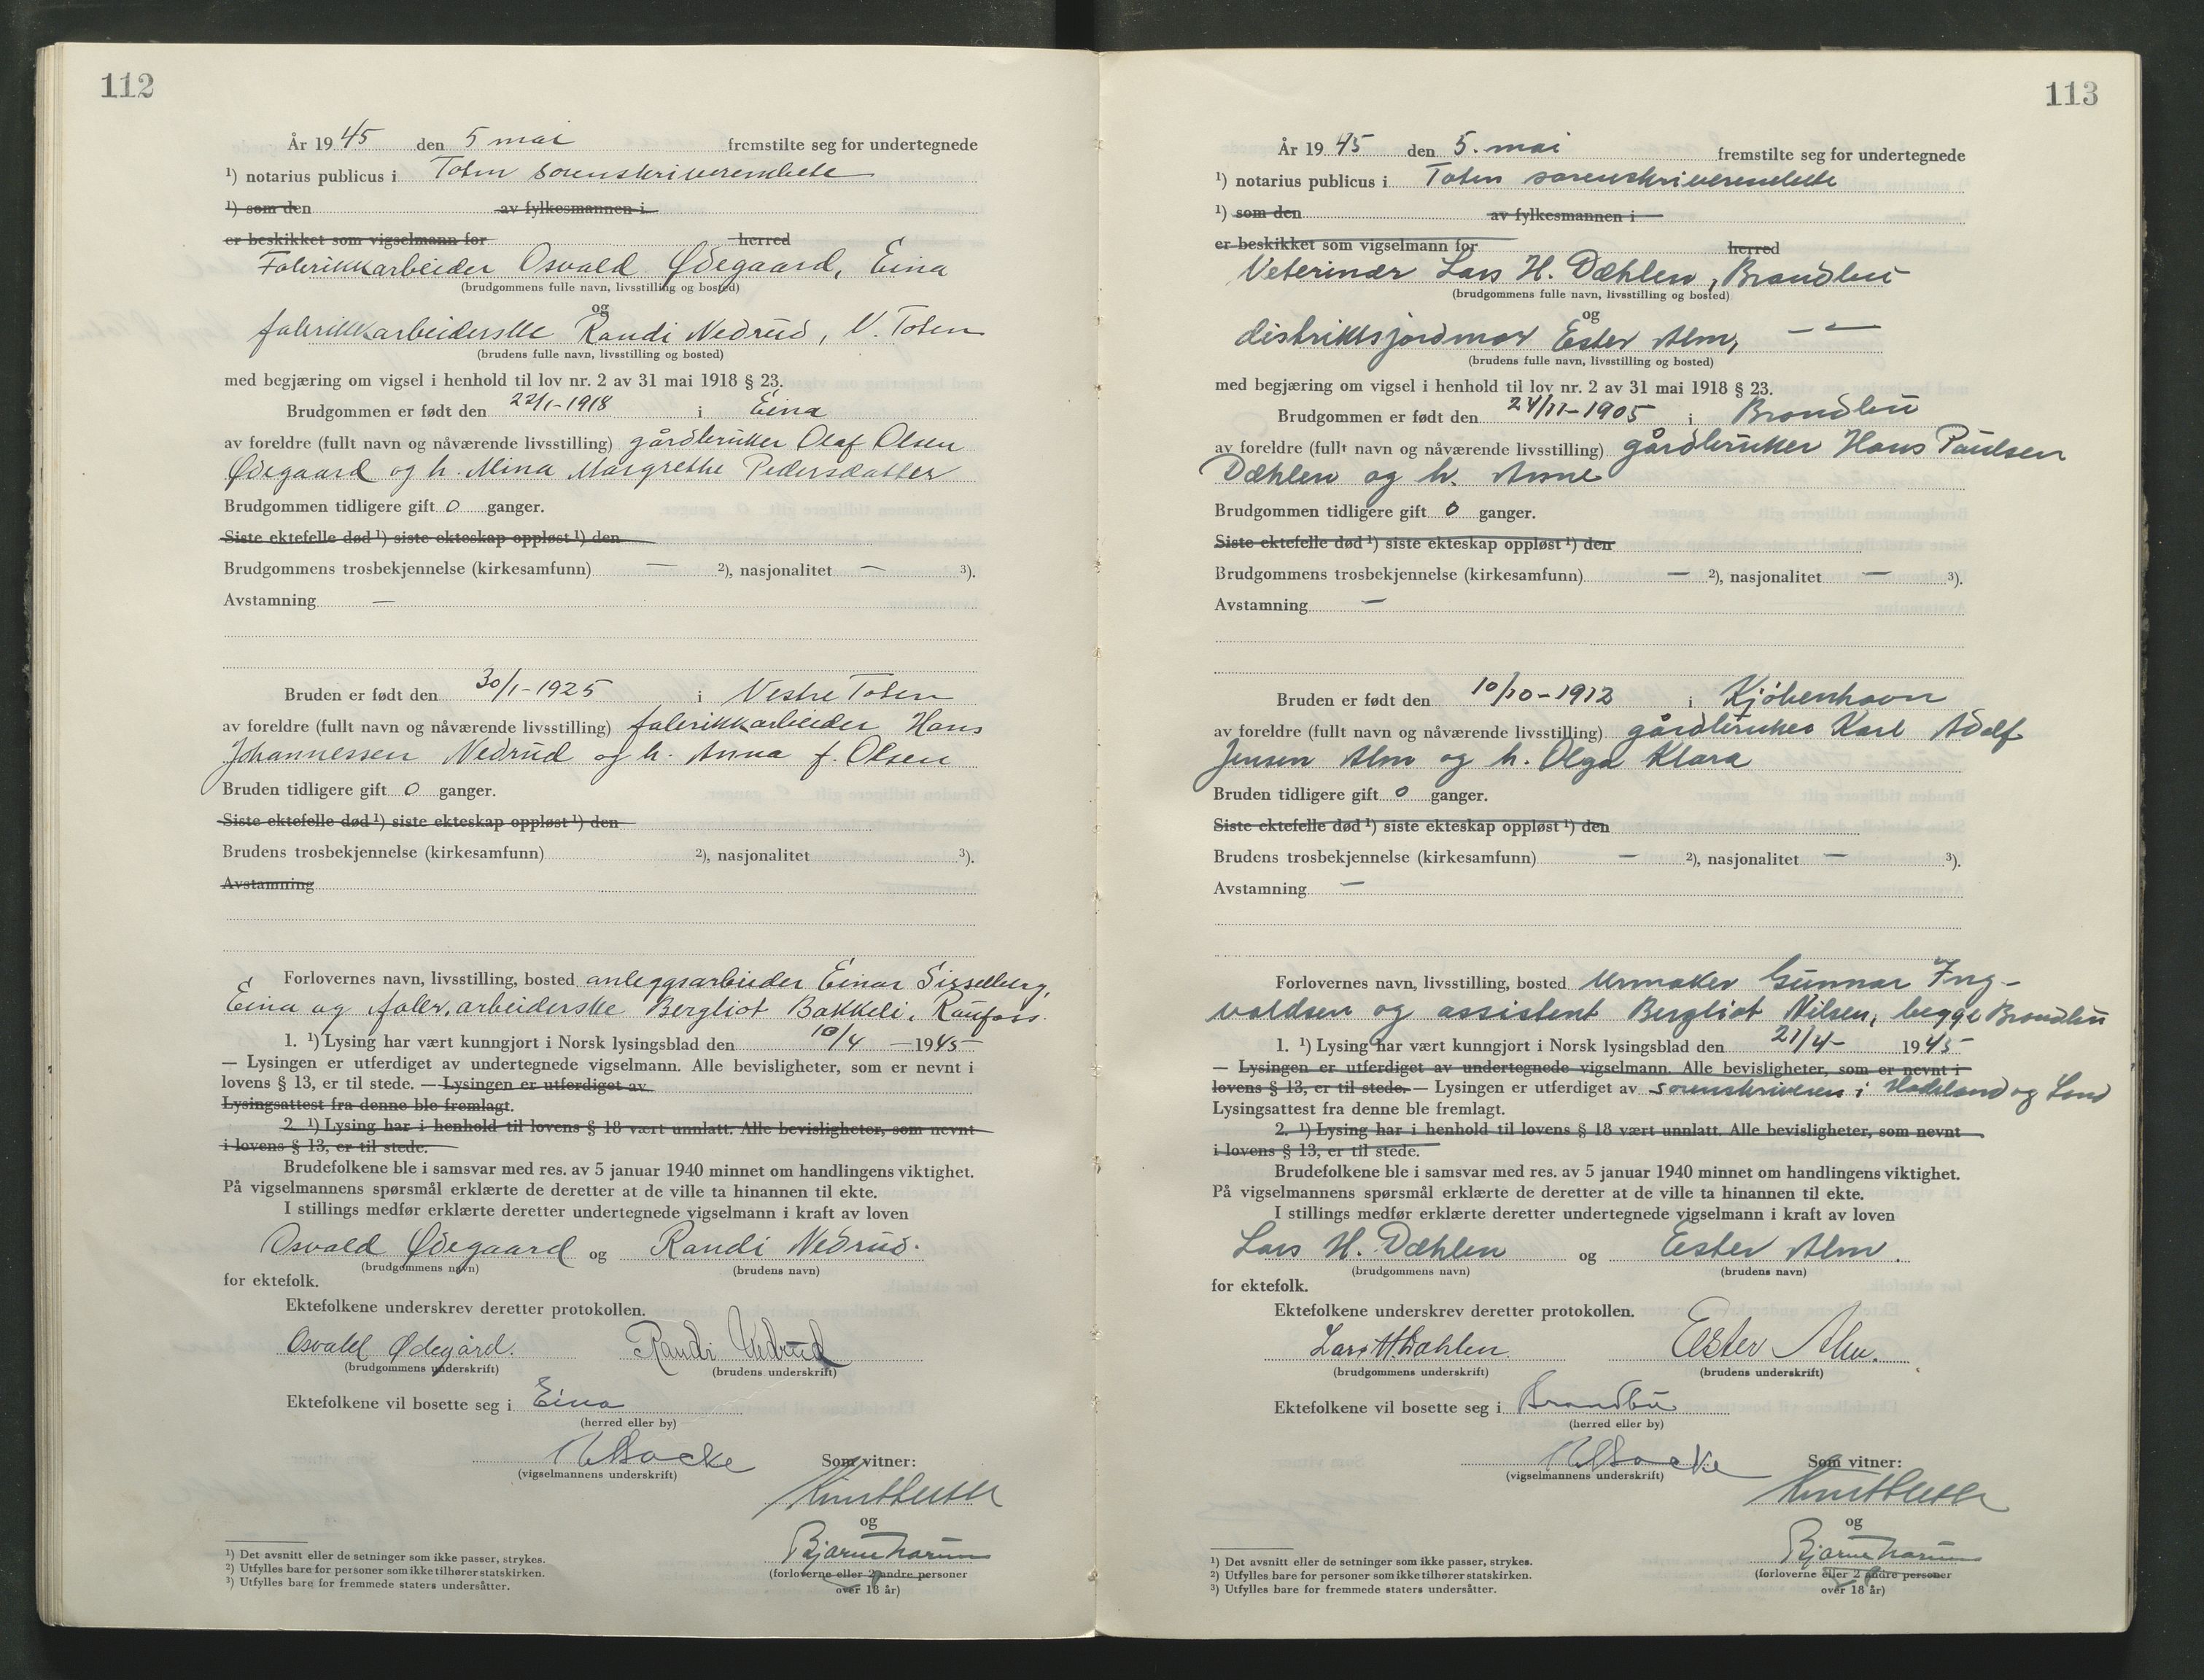 112
År 1945 den 5 mai fremstilte seg for undertegnede
¹) notarius publicus i Toten sorenskriverembete
¹) som den av fylkesmannen i
er beskikket som vigselmann for herred
Fabrikkarbeider Osvald Ødegaard, Eina
(brudgommens fulle navn, livsstilling og bosted)
og
fabrikkarbeiderske Randi Nedrud, V. Toten
(brudens fulle navn, livsstilling og bosted)
med begjæring om vigsel i henhold til lov nr. 2 av 31 mai 1918 § 23.
Brudgommen er født den 22/1-1918 i Eina
av foreldre (fullt navn og nåværende livsstilling) gårdbruker Olaf Olsen
Ødegaard og h. Mina Margrethe Pedersdatter
Brudgommen tidligere gift 0 ganger.
Siste ektefelle død ¹) siste ekteskap oppløst ¹) den
Brudgommens trosbekjennelse (kirkesamfunn) — ²), nasjonalitet — ³).
Avstamning —
Bruden er født den 30/1-1925 i Vestre Toten
av foreldre (fullt navn og nåværende livsstilling) fabrikkarbeider Hans
Johannessen Nedrud og h. Anna f. Olsen
Bruden tidligere gift 0 ganger.
Siste ektefelle død ¹) siste ekteskap oppløst ¹) den
Brudens trosbekjennelse (kirkesamfunn) ²), nasjonalitet ³).
Avstamning
Forlovernes navn, livsstilling, bosted anleggsarbeider Einar Sisselberg,
Eina og fabr.arbeiderske Bergliot Bakkeli, Raufoss.
1. ¹) Lysing har vært kunngjort i Norsk lysingsblad den 10/4 — 1945
— Lysingen er utferdiget av undertegnede vigselmann. Alle bevisligheter, som er nevnt i
lovens § 13, er til stede. — Lysingen er utferdiget av
Lysingsattest fra denne ble fremlagt.
2. ¹) Lysing har i henhold til lovens § 18 vært unnlatt. Alle bevisligheter, som nevnt
i lovens § 13, er til stede.
Brudefolkene ble i samsvar med res. av 5 januar 1940 minnet om handlingens viktighet.
På vigselmannens spørsmål erklærte de deretter at de ville ta hinannen til ekte.
I stillings medfør erklærte deretter undertegnede vigselmann i kraft av loven
Osvald Ødegaard og Randi Nedrud.
(brudgommens navn) (brudens navn)
for ektefolk.
Ektefolkene underskrev deretter protokollen.
Osvald Ødegård. Randi Nedrud
(brudgommens underskrift) (brudens underskrift)
Ektefolkene vil bosette seg i Eina
(herred eller by)
Som vitner:
(vigselmannens underskrift)
og
Bjarne
(forloverne eller 2 andre personer
over 18 år)
¹) Det avsnitt eller de setninger som ikke passer, strykes.
²) Utfylles bare for personer som ikke tilhører statskirken.
³) Utfylles bare for fremmede staters undersåtter.
113
År 1945 den 5. mai fremstilte seg for undertegnede
¹) notarius publicus i Toten sorenskriverembete
¹) som den av fylkesmannen i
er beskikket som vigselmann for herred
Veterinær Lars H. Dæhlen, Brandbu
(brudgommens fulle navn, livsstilling og bosted)
og
distriktsjordmor Ester Alm, — " —
(brudens fulle navn, livsstilling og bosted)
med begjæring om vigsel i henhold til lov nr. 2 av 31 mai 1918 § 23.
Brudgommen er født den 24/11-1905 i Brandbu
av foreldre (fullt navn og nåværende livsstilling) gårdbruker Hans Paulsen
Dæhlen og h. Anne
Brudgommen tidligere gift 0 ganger.
Siste ektefelle død ¹) siste ekteskap oppløst ¹) den
Brudgommens trosbekjennelse (kirkesamfunn) — ²), nasjonalitet — ³).
Avstamning —
Bruden er født den 10/10-1912 i Kjøbenhavn
av foreldre (fullt navn og nåværende livsstilling) gårdbruker Karl Adolf
Jensen Alm og h. Olga Klara
Bruden tidligere gift 0 ganger.
Siste ektefelle død ¹) siste ekteskap oppløst ¹) den
Brudens trosbekjennelse (kirkesamfunn) — ²), nasjonalitet — ³).
Avstamning —
Forlovernes navn, livsstilling, bosted Urmaker Gunnar Ing-
valdsen og assistent Bergliot Nilsen, begge Brandbu
1. ¹) Lysing har vært kunngjort i Norsk lysingsblad den 21/4- 1945
— Lysingen er utferdiget av undertegnede vigselmann. Alle bevisligheter, som er nevnt i
lovens § 13, er til stede. — Lysingen er utferdiget av sorenskriveren i Hadeland og Land
Lysingsattest fra denne ble fremlagt.
2. ¹) Lysing har i henhold til lovens § 18 vært unnlatt. Alle bevisligheter, som nevnt
i lovens § 13, er til stede.
Brudefolkene ble i samsvar med res. av 5 januar 1940 minnet om handlingens viktighet.
På vigselmannens spørsmål erklærte de deretter at de ville ta hinannen til ekte.
I stillings medfør erklærte deretter undertegnede vigselmann i kraft av loven
Lars H. Dæhlen og Ester Alm.
(brudgommens navn) (brudens navn)
for ektefolk.
Ektefolkene underskrev deretter protokollen.
Lars H. Dæhlen. Ester Alm.
(brudgommens underskrift) (brudens underskrift)
Ektefolkene vil bosette seg i Brandbu
(herred eller by)
Som vitner:
(vigselmannens underskrift)
og
Bjarne
(forloverne eller 2 andre personer
over 18 år)
¹) Det avsnitt eller de setninger som ikke passer, strykes.
²) Utfylles bare for personer som ikke tilhører statskirken.
³) Utfylles bare for fremmede staters undersåtter.